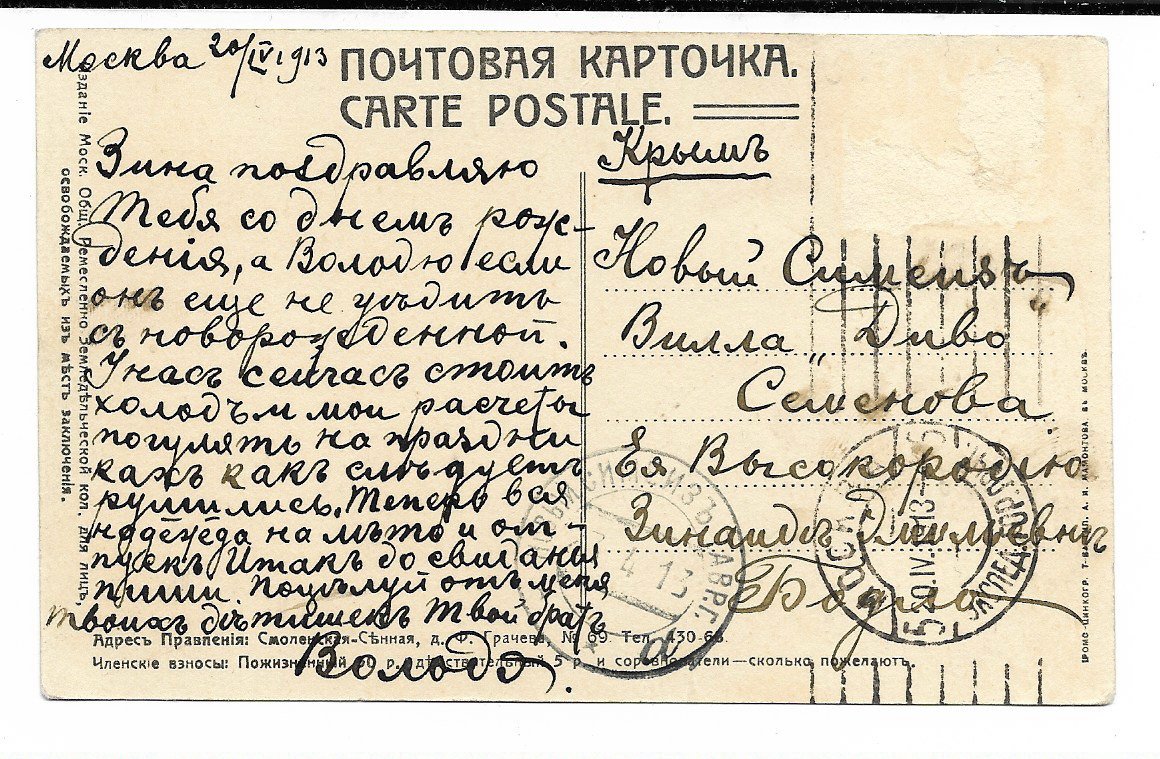 Москва 20/IV 1913
ПОЧТОВАЯ КАРТОЧКА.
CARTE POSTALE.
Зина поздравляю
Тебя со днемъ рож-
денія, а Володю если
онъ еще не уѣдить
съ новорожденной.
У насъ сейчасъ стоитъ
холодъ и мои расчеты
погулять на праздни
кахъ какъ слѣдуетъ
рушились. Теперь вся
надежда на лѣто и от-
пускъ Итакъ до свиданья
пиши. Поцѣлуй отъ меня
твоихъ дѣтишекъ Твой братъ
Володя.
Крымъ
Новый Симеизъ
Вилла „Диво
Семенова
Ея Высокородію
Зинаидѣ
Изданіе Моск. Общ. Ремесленно-Земледѣльческой кол. для лицъ,
освобождаемыхъ изъ мѣстъ заключенія.
Адресъ Правленія: Смоленская-Сѣнная, д. Ф. Грачева, № 69 Тел. 430-66.
Членскіе взносы: Пожизненный 50 р., дѣйствительный 5 р. и соревнователи—сколько пожелаютъ.
ХРОМО-ЦИНКОГР. Т-ВА ТИП. А. И. МАМОНТОВА ВЪ МОСКВѢ.
СИМЕИЗЪ ТАВР.Г.
4 13
а
МОСКВА
20.IV.1913
5